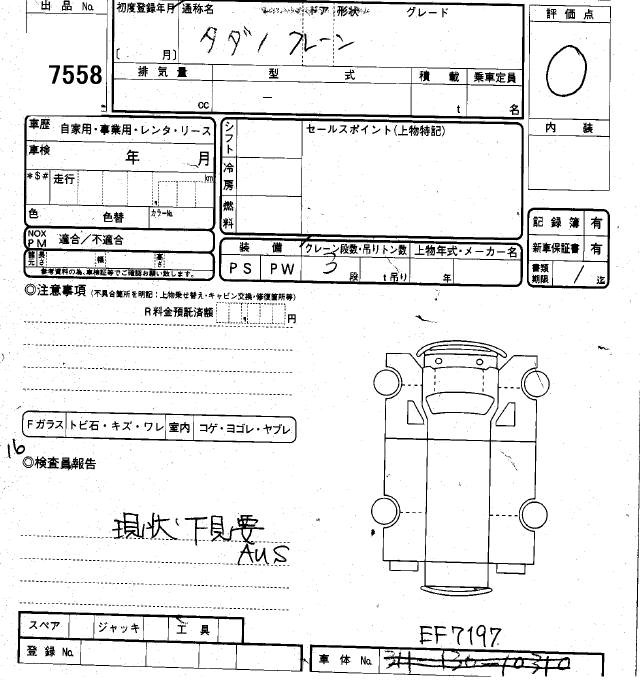 出品 No. 初度登録年月 通称名 ドア 形状 グレード 評価点
タダノ クレーン
〔 月〕
7558
0
排気量 型 式 積載 乗車定員
cc ー t 名
車歴 自家用・事業用・レンタ・リース シフト セールスポイント(上物特記) 内 装
車検 年 月
*$# 走行 km 冷房
色 色替 カラーNo. 燃料
記録簿 有
NOX PM 適合/不適合
新車保証書 有
装 備 クレーン段数・吊りトン数 上物年式・メーカー名
長さ 幅 高さ
PS PW 3 段 t吊り 年
書類期限 / 迄
参考資料の為、車検証等でご確認お願い致します。
◎注意事項 (不具合箇所を明記:上物乗せ替え・キャビン交換・修復箇所等)
R料金預託済額 円
Fガラス トビ石・キズ・ワレ 室内 コゲ・ヨゴレ・ヤブレ
16
◎検査員報告
現状 下見要
AUS
スペア ジャッキ 工具
EF7197
登録 No. 車体 No. 311-130-10310